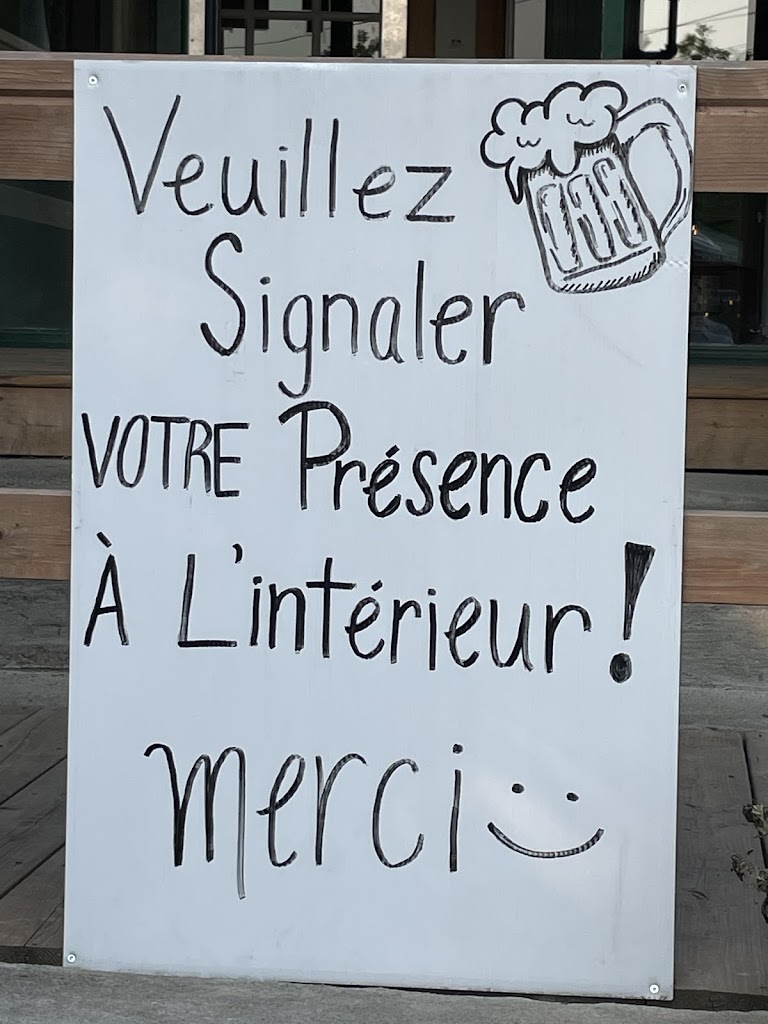 Veuillez
Signaler
VOTRE Présence
À L'intérieur !
merci